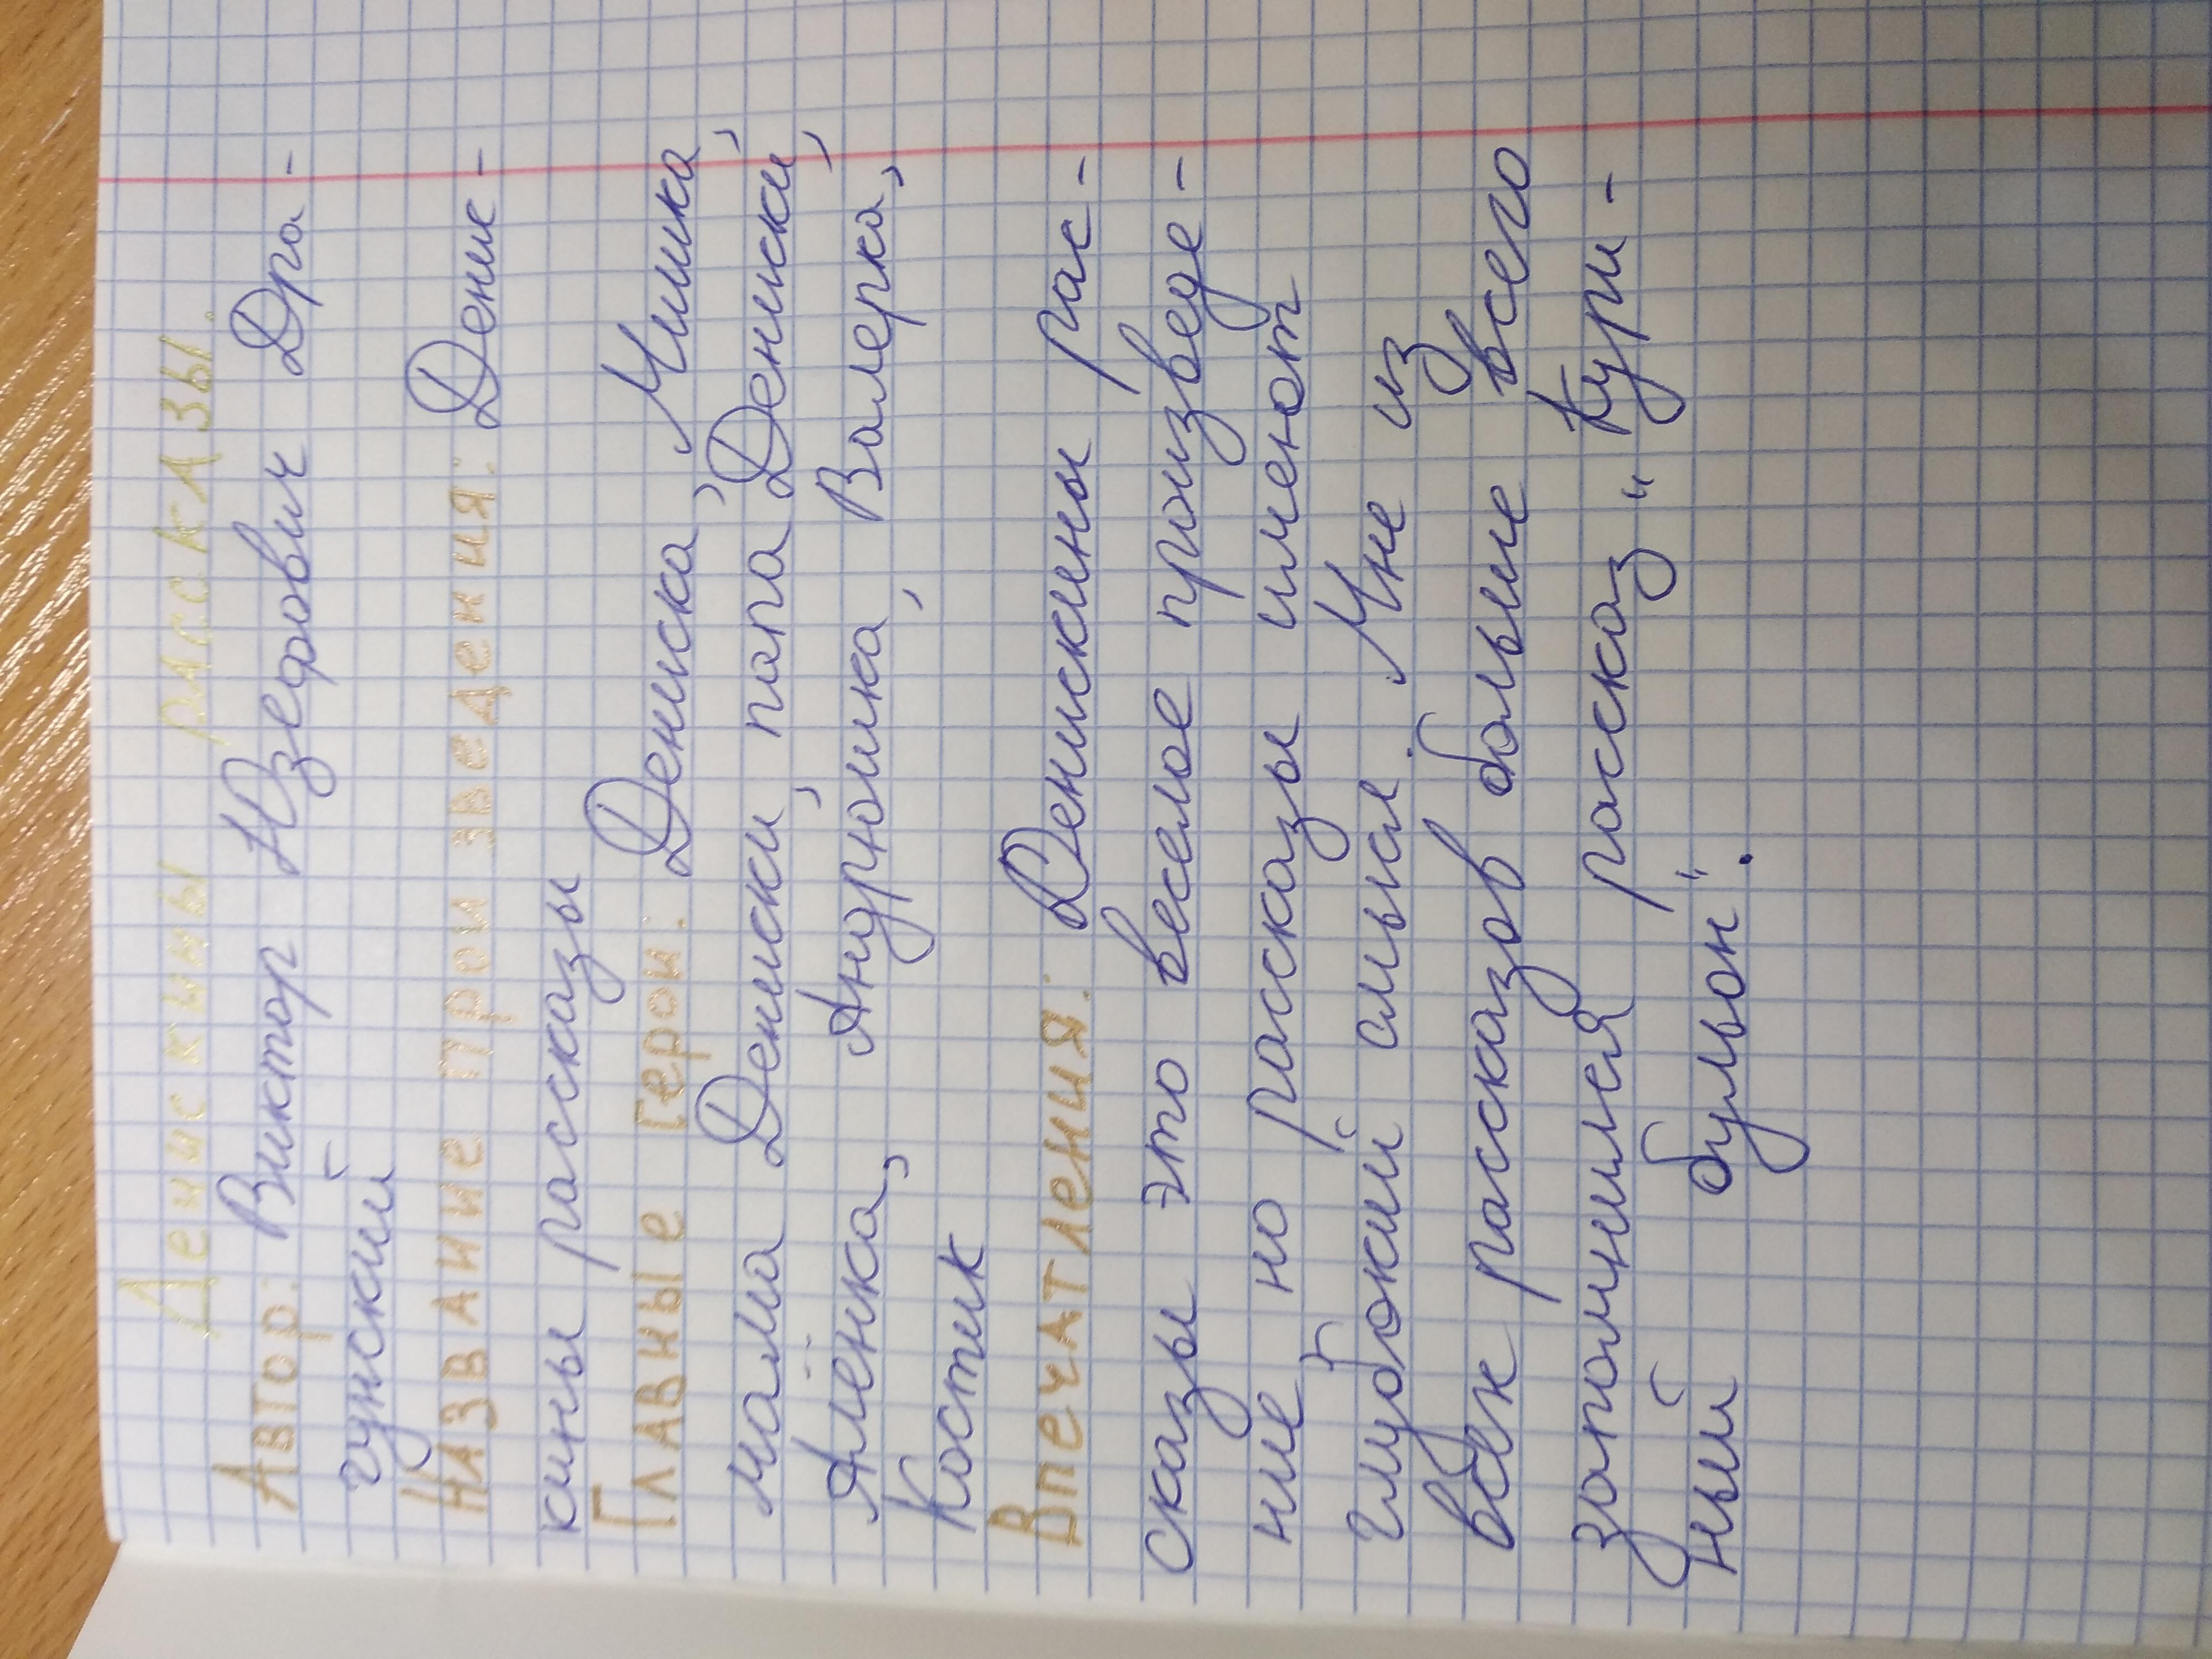 Денискины рассказы.
Автор: Виктор Юзефович Дра-
гунский
Название произведения: Денис-
кины рассказы
Главные герои: Дениска, Мишка,
мама Дениски, папа Дениски,
Алёнка, Андрюшка, Валерка,
Костик
Впечатления: Денискины рас-
сказы это веселое произведе-
ние, но расказы имеют
глубокий смысл. Мне из
всех рассказов больше всего
запомнился рассказ „Кури-
ный бульон".